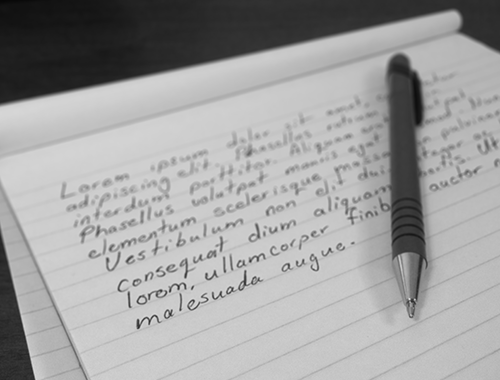 Lorem ipsum dolor sit amet,
adipiscing elit. Phasellus rutrum
interdum porttitor. Aliquam
Phasellus volutpat mauris eget
elementum scelerisque
Vestibulum non elit duis Ut
consequat dium aliquam auctor
lorem, ullamcorper finib
malesuada augue.